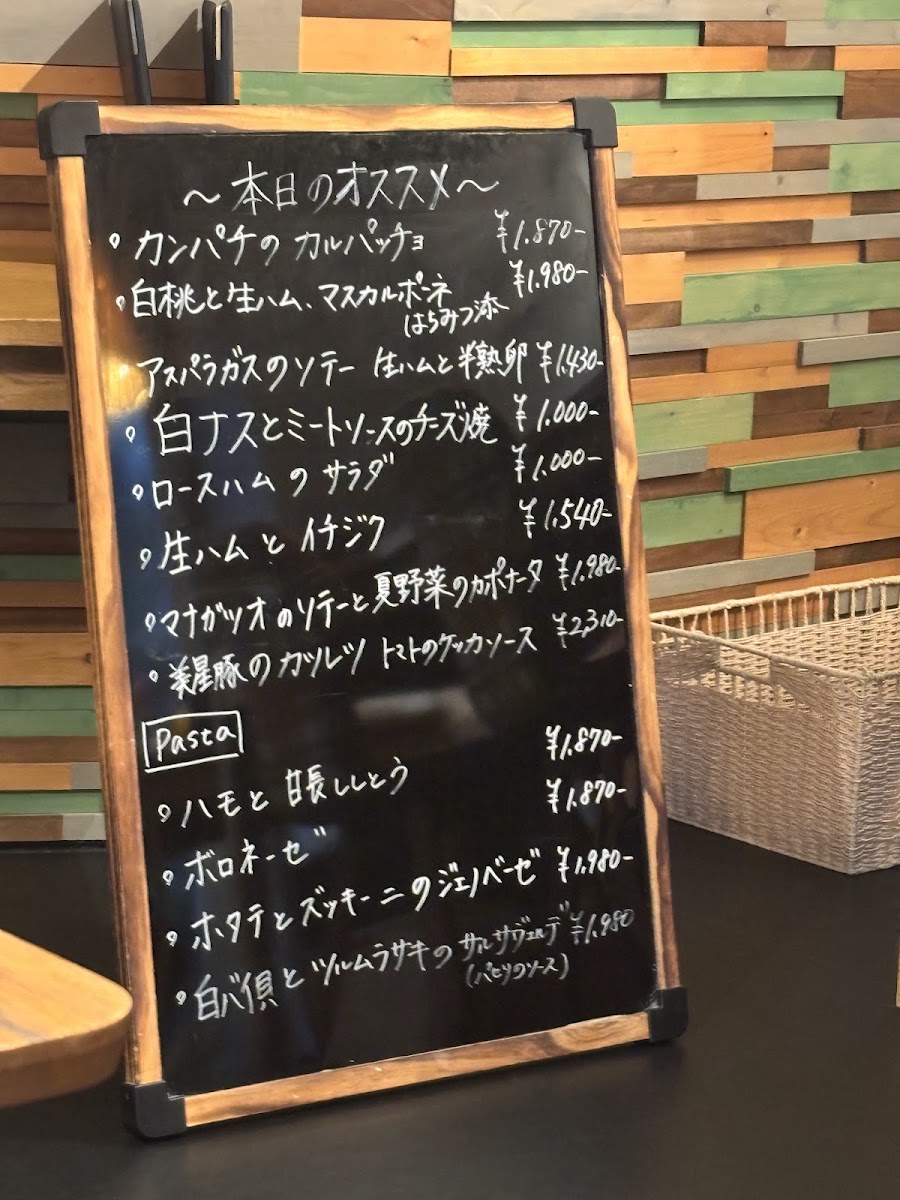 ～本日のオススメ～
。カンパチの カルパッチョ ¥1.870-
。白桃と生ハム、マスカルポーネ ¥1.980-
はちみつ添
。アスパラガスのソテー 生ハムと半熟卵 ¥1.430-
。白ナスとミートソースのチーズ焼 ¥1.000-
。ロースハム の サラダ ¥1.000-
。生ハム と イチジク ¥1.540-
。マナガツオのソテーと夏野菜のカポナータ ¥1.980-
。美星豚のカツレツ トマトのケッカソース ¥2,310-
Pasta
。ハモと 甘長ししとう ¥1.870-
。ボロネーゼ ¥1.870-
。ホタテとズッキーニのジェノベーゼ ¥1.980-
。白バイ貝と ツルムラサキの サルサヴェルデ ¥1.980
(パセリのソース)